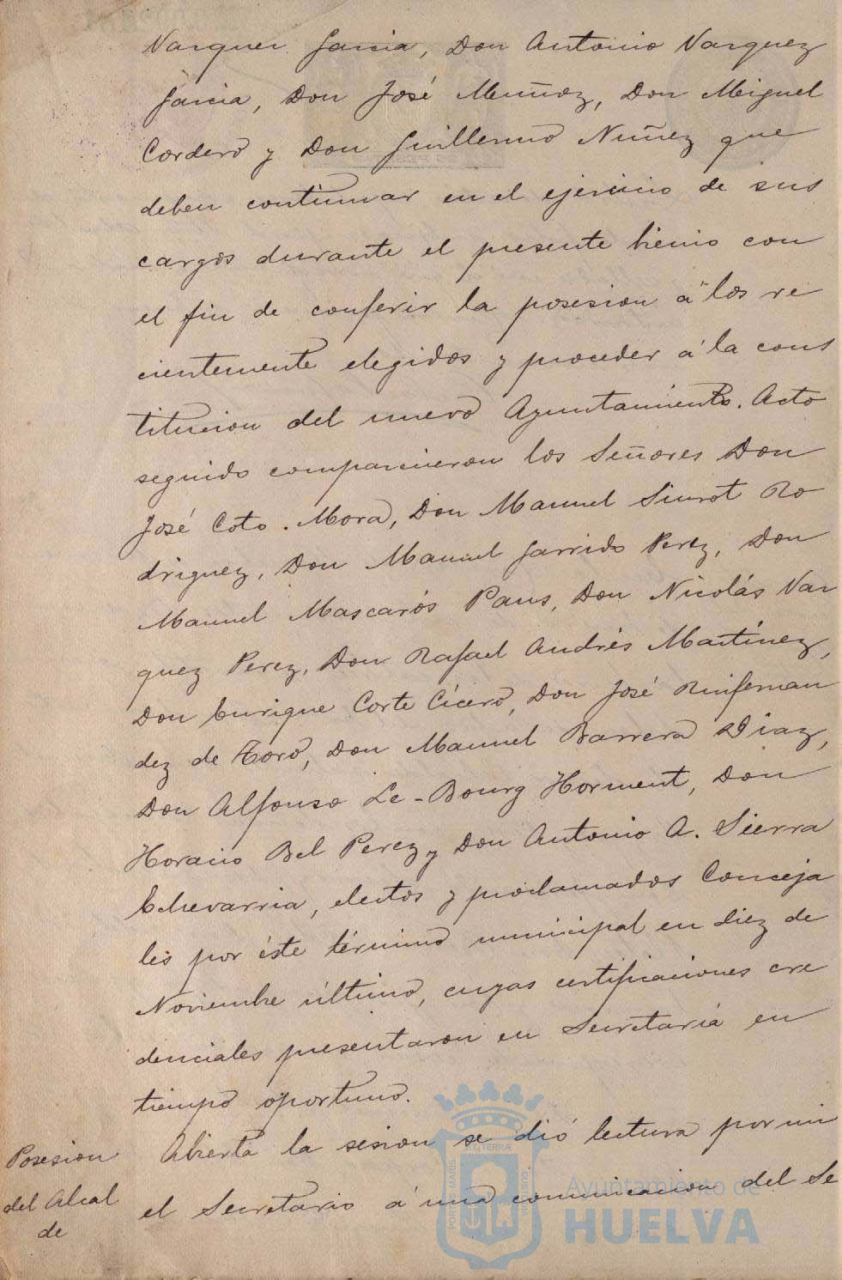 Vazquez Garcia, Don Antonio Vazquez
Garcia, Don José Muñoz, Don Miguel
Cordero y Don Guillermo Nuñez que
deben continuar en el ejercicio de sus
cargos durante el presente bienio con
el fin de conferir la posesion á los re
cientemente elegidos y proceder á la cons
titucion del nuevo Ayuntamiento. Acto
seguido comparecieron los Señores Don
José Coto Mora, Don Manuel Siurot Ro
driguez, Don Manuel Garrido Perez, Don
Manuel Mascarós Paus, Don Nicolás Vaz
quez Perez, Don Rafael Andrés Martínez,
Don Enrique Corte Cícero, Don José Ruifernan
dez de Toro, Don Manuel Barrera Diaz,
Don Alfonso Le-Bourg Horment, Don
Horacio Bel Perez y Don Antonio A. Sierra
Echevarria, electos y proclamados Conceja
les por éste término municipal en diez de
Noviembre último, cuyas certificaciones cre
denciales presentaron en Secretaría en
tiempo oportuno.
Posesion
del Alcal
de
Abierta la sesion se dió lectura por mi
el Secretario á una comunicacion del Se
Ayuntamiento de
HUELVA